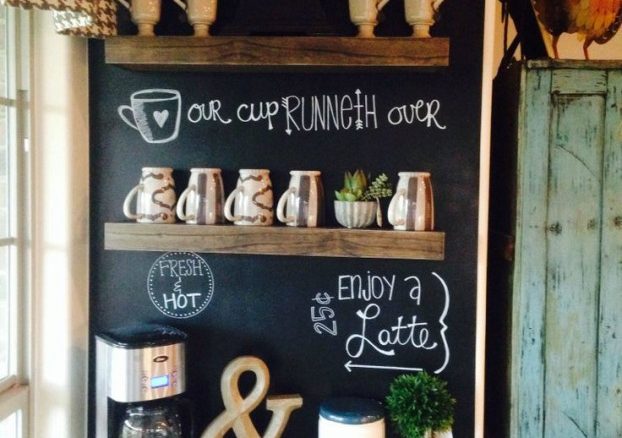 OUR CUP RUNNETH OVER
FRESH
&
HOT
25¢
ENJOY A
Latte
&